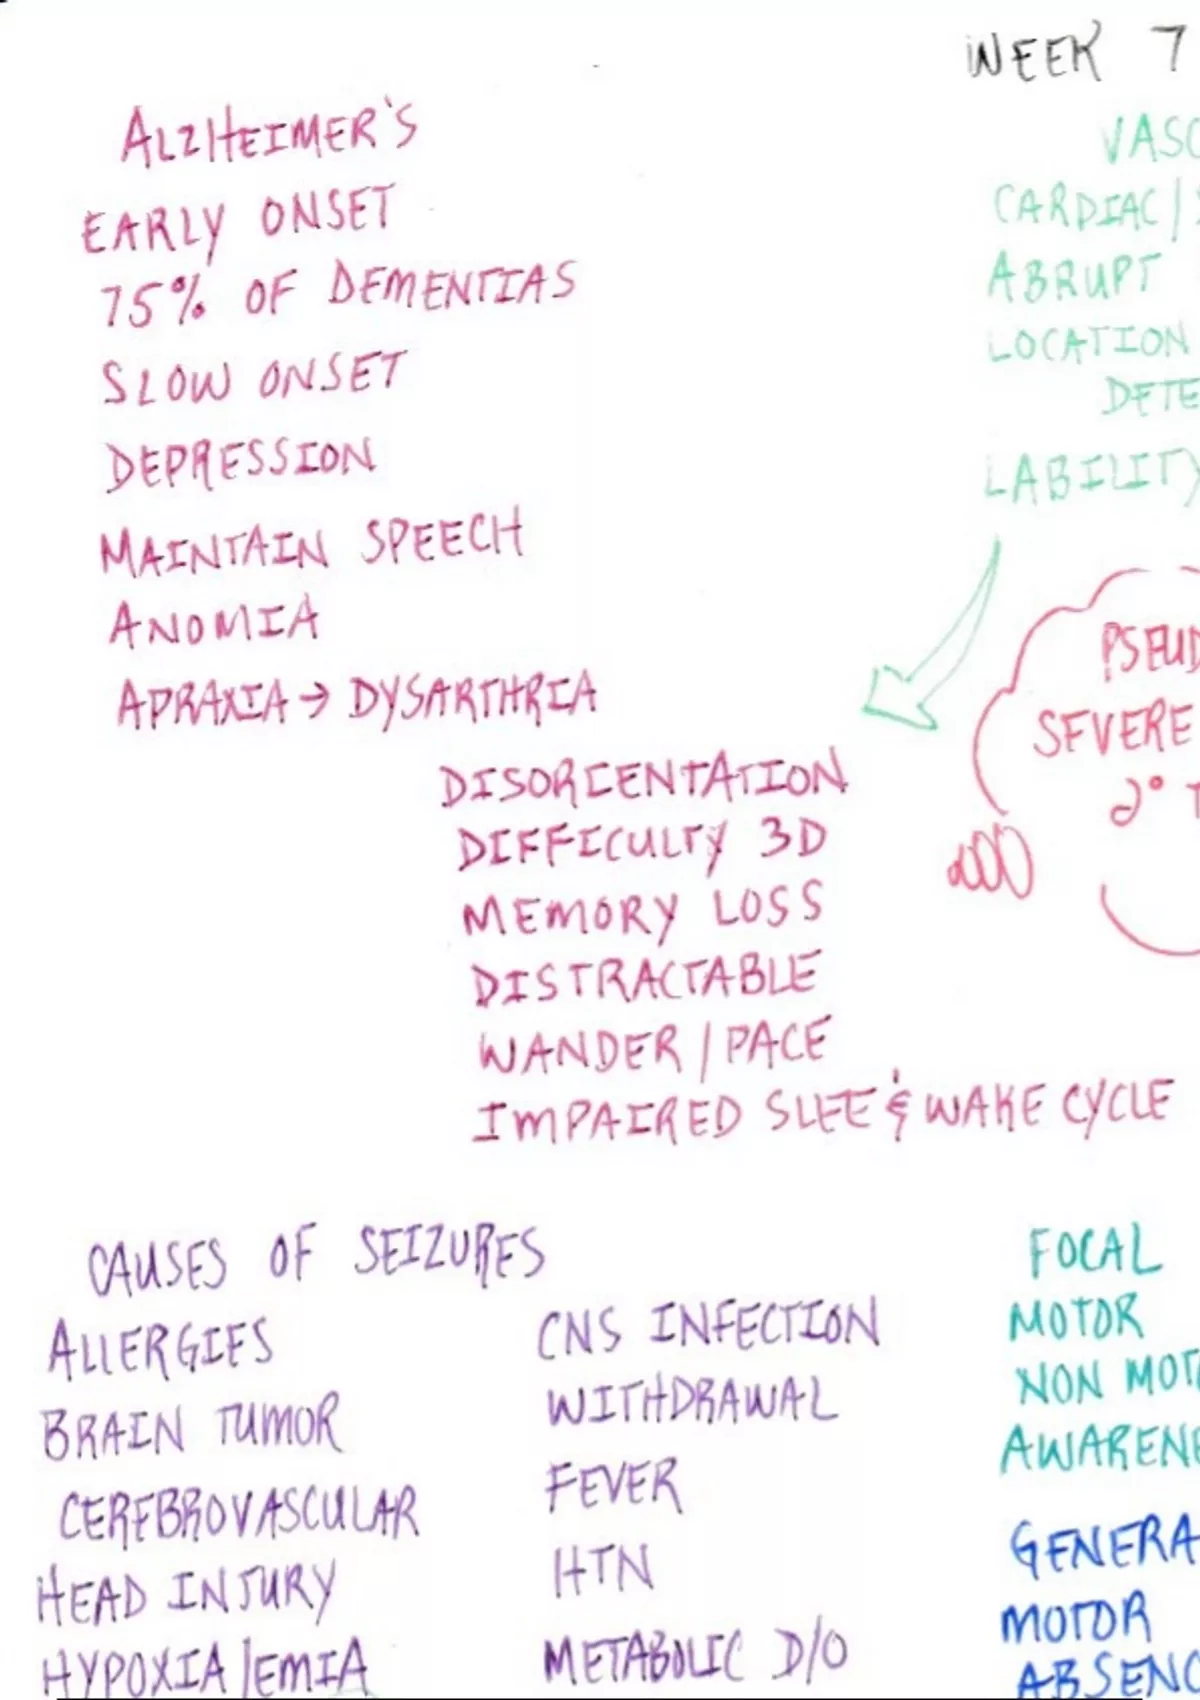 WEEK 7
ALZHEIMER'S
EARLY ONSET
75% OF DEMENTIAS
SLOW ONSET
DEPRESSION
MAINTAIN SPEECH
ANOMIA
APRAXIA → DYSARTHRIA
DISORIENTATION
DIFFICULTY 3D
MEMORY LOSS
DISTRACTABLE
WANDER / PACE
IMPAIRED SLEE & WAKE CYCLE
VASC
CARDIAC /
ABRUPT
LOCATION
DETE
LABILITY
PSEUD
SEVERE
2° T
CAUSES OF SEIZURES
ALLERGIES
BRAIN TUMOR
CEREBROVASCULAR
HEAD INJURY
HYPOXIA /EMIA
CNS INFECTION
WITHDRAWAL
FEVER
HTN
METABOLIC D/O
FOCAL
MOTOR
NON MOT
AWARENE
GENERA
MOTOR
ABSENC